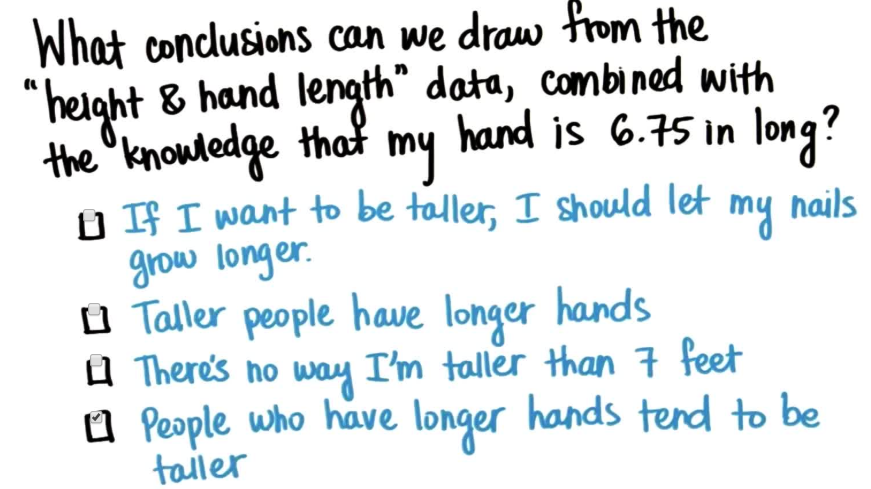 What conclusions can we draw from the
"height & hand length" data, combined with
the knowledge that my hand is 6.75 in long?
If I want to be taller, I should let my nails
grow longer.
Taller people have longer hands
There's no way I'm taller than 7 feet
People who have longer hands tend to be
taller